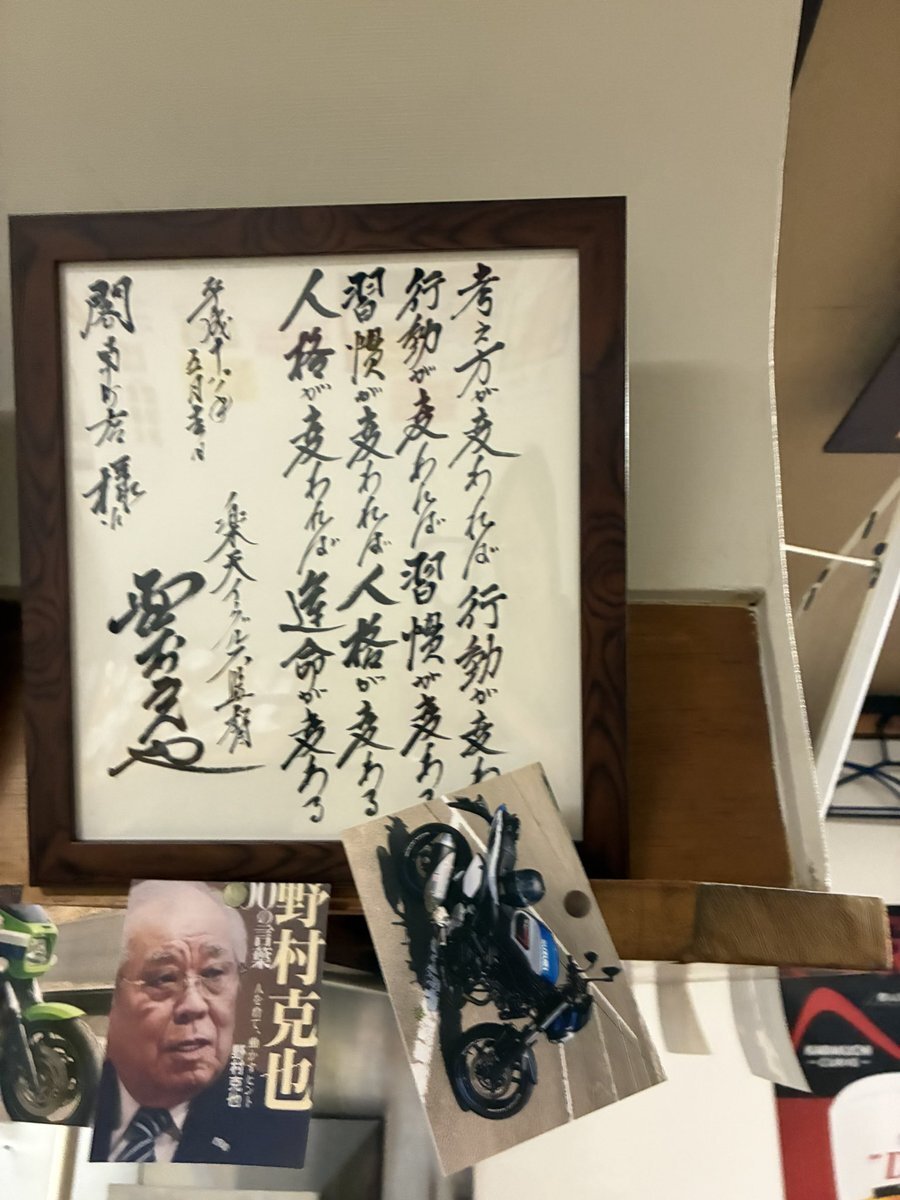 考え方が変われば 行動が変わ
行動が変われば 習慣が変わる
習慣が変われば 人格が変わる
人格が変われば 運命が変わる
平成十八年
五月吉日
楽天イーグルス監督
様に
野村克也
の言葉
人を育て、動かすヒント
野村克也
SUZUKI